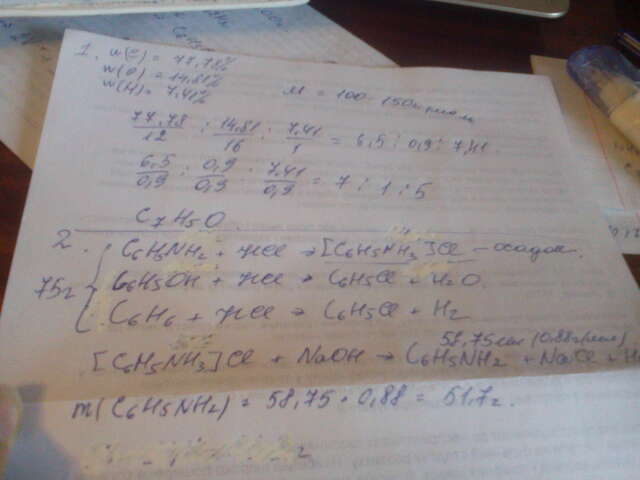 1. w(C) = 77,78%
w(O) = 14,81%
w(H) = 7,41%
M = 100-150г/моль
77,78/12 : 14,81/16 : 7,41/1 = 6,5 : 0,9 : 7,41
6,5/0,9 : 0,9/0,9 : 7,41/0,9 = 7 : 1 : 5
C7H5O
2. C6H5NH2 + HCl → [C6H5NH3]Cl - осадок.
75г C6H5OH + HCl → C6H5Cl + H2O
C6H6 + HCl → C6H5Cl + H2
58,75мл (0,88г/мл)
[C6H5NH3]Cl + NaOH → C6H5NH2 + NaCl + H
m(C6H5NH2) = 58,75 · 0,88 = 51,7г.